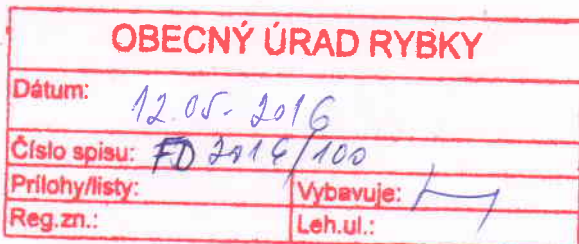 OBECNÝ ÚRAD RYBKY
Dátum: 12.05.2016
Číslo spisu: FD 2016/100
Prílohy/listy: Vybavuje:
Reg.zn.: Leh.ul.: